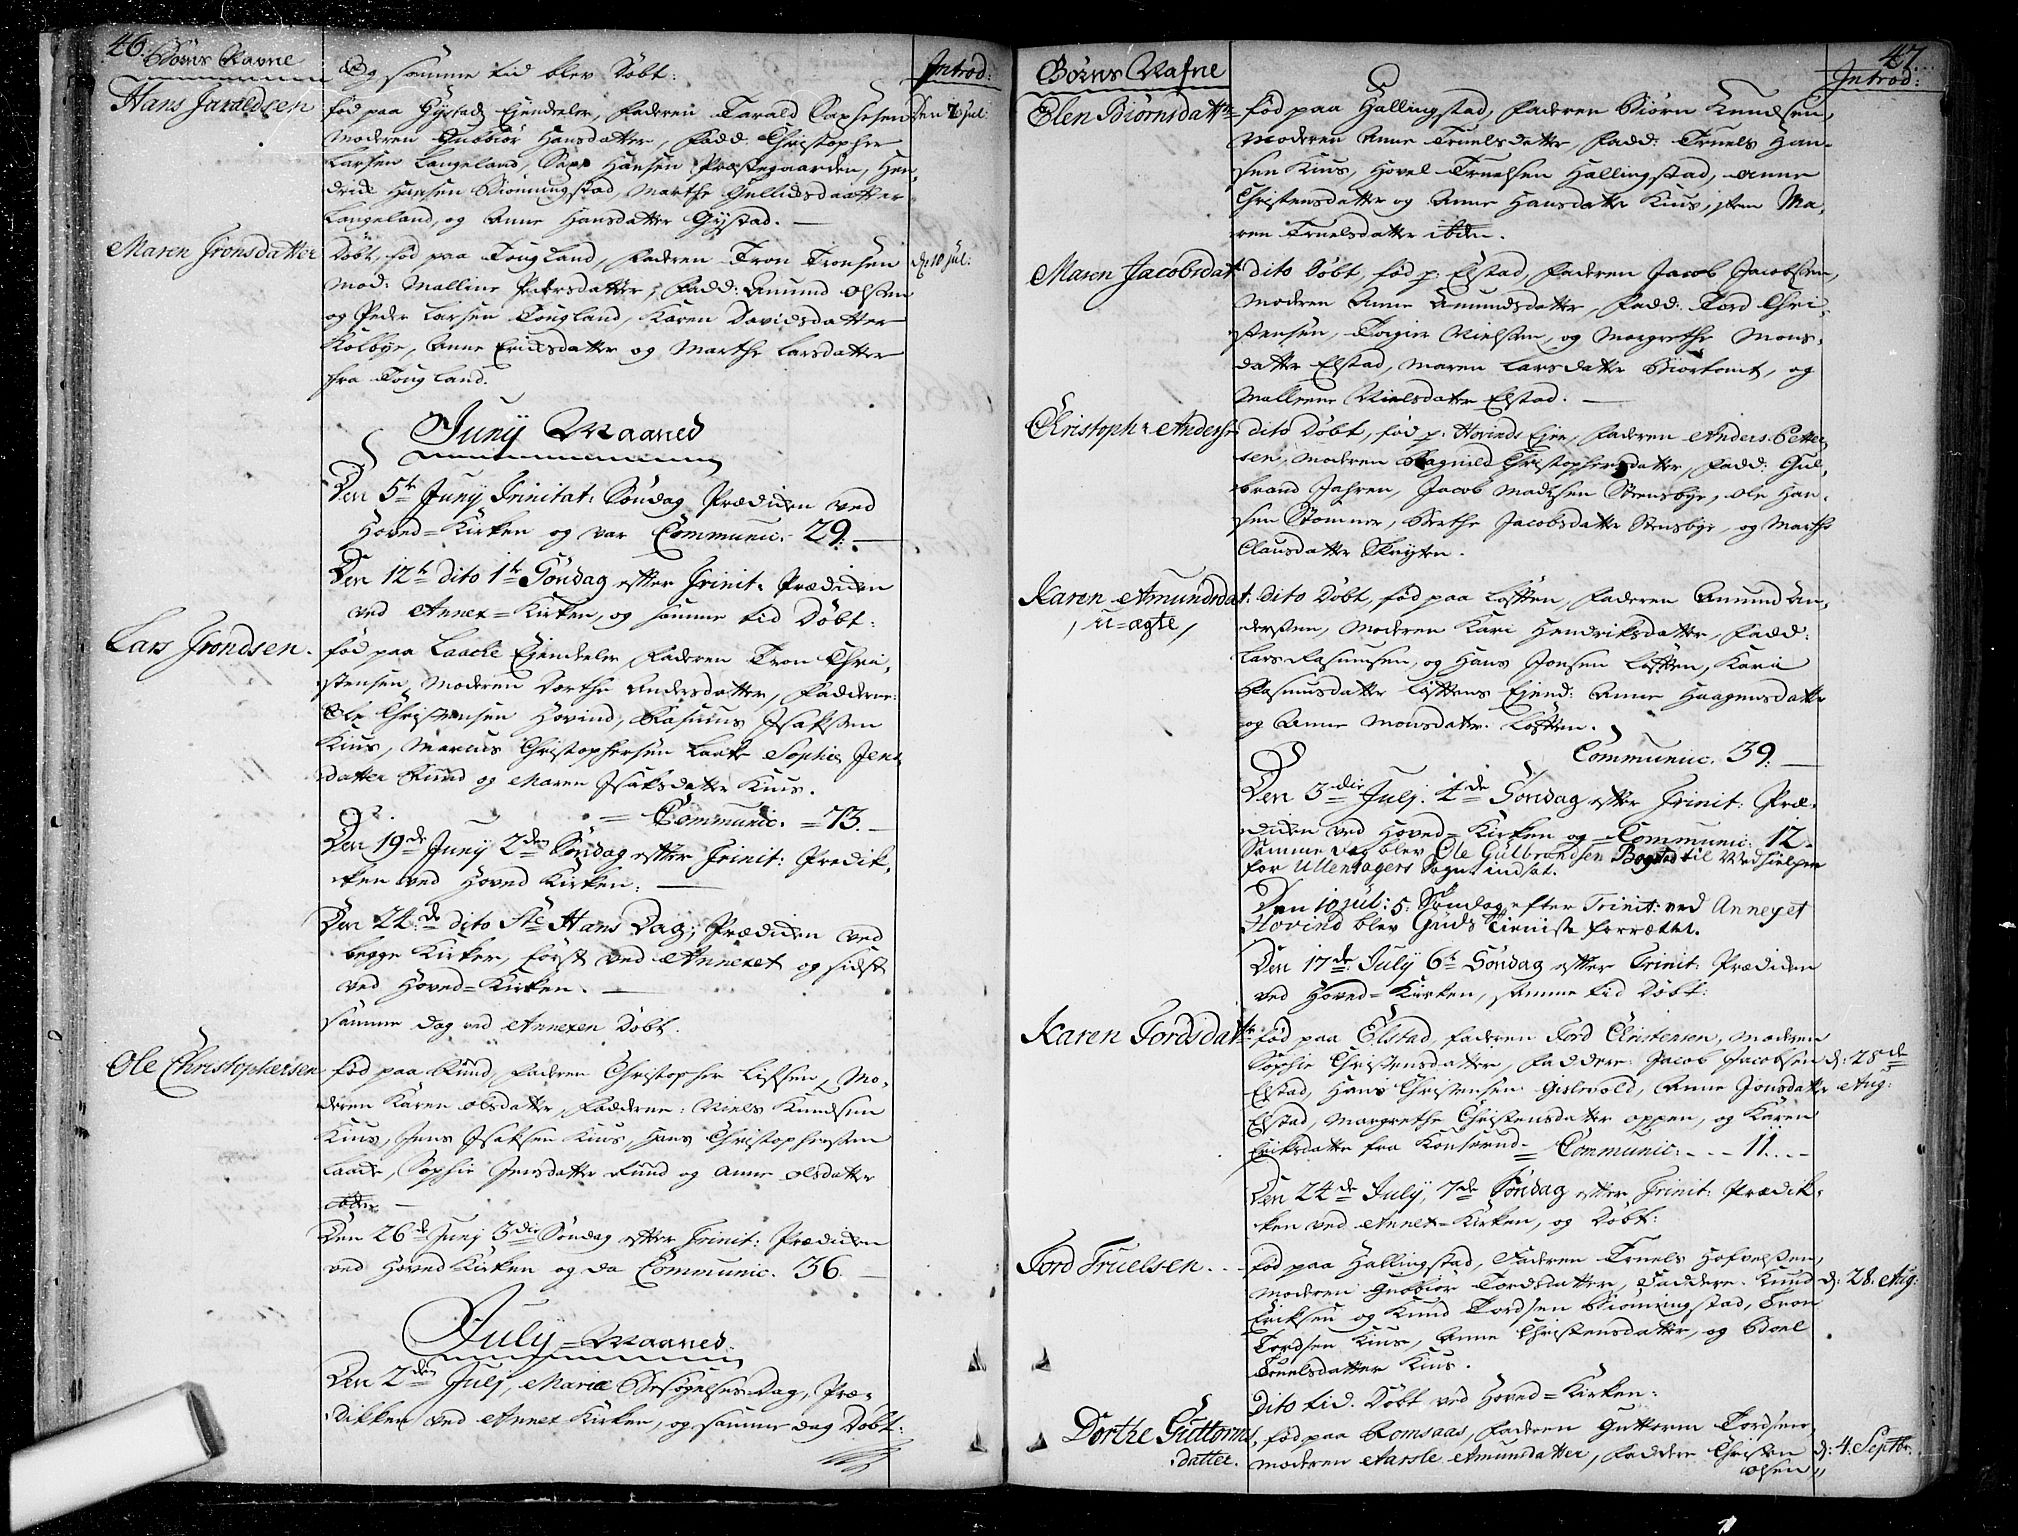 46.
Börns Navne
Introd:
Og samme tid blev Döbt:
Hans Taraldsen
fød paa Gystad Eiendeler, Faderen Tarald Capsesen
Den 7 Jul:
Moderen Gubbiör Hansdatter, Fadd. Christopher
Larsen Langeland, Hansen Præstegaarden, Hen-
drich Hansen Biönningstad, Marthe Gullichsdaatter
Langeland, og Anne Hansdatter Gystad.
Maren Tronsdatter
Döbt, fød paa Tougland, Faderen Tron Tronsen
d. 10 Jul:
Mod: Malline Pedersdatter, Fadd: Amund Olsen
og Peder Larsen Tougland, Karen Davidsdatter
Kolbye, Anne Erichsdatter og Marthe Larsdatter
fra Tougland.
Juny Maaned
Den 5te Juny Trinitat: Söndag Prædiken ved
Hoved-Kirken og var Communic. 29.
Den 12te dito 1te Söndag efter Trinit: Prædiken
ved Annex-Kirken, og samme tid Döbt:
Lars Trondsen.
fød paa Laache Eiendeeler, Faderen Tron Chri-
stensen, Moderen Dorthe Andersdatter, Faddere:
Ole Christensen Hovind, Rasmus Isaksen
Kius, Marcus Christophersen Laake, Sophie Jens
datter Rund og Maren Isaksdatter Kius.
Communic. 73.
Den 19de Juny 2den Söndag efter Trinit: Prædik-
ken ved Hoved Kirken.
Den 24de dito Ste Hans Dag; Prædiken ved
begge Kirker, først ved Annexet og sidst
ved Hoved-Kirken.
samme Dag ved Annexen Döbt.
Ole Christophersen
fød paa Rund, Faderen Christopher Lifsen, Mo-
deren Karen Olsdatter, Faddere: Niels Knudsen
Kius, Jens Isaksen Kius, Hans Christophersen
Laache, Sophie Jensdatter Rund og Anne Olsdatter
ibdm.
Den 26de Juny 3die Söndag efter Trinit: Prædiken
ved Hoved Kirken og da Communic. 36.
July-Maaned.
Den 2den July, Mariæ Besögelses Dag, Præ-
dikken ved Annex Kirken, og samme dag Döbt:
47.
Börns Nafne
Introd:
Elen Biörnsdattr
fød paa Hallingstad, Faderen Biörn Knudsen,
Moderen Anne Truelsdatter, Fadd: Truels Han-
sen Kius, Hovel Truelsen Hallingstad, Anne
Christensdatter og Anne Hansdatter Kius, item Ma-
ren Truelsdatter ibdm.
Maren Jacobsdat:
dito Döbt, fød p: Elstad, Faderen Jacob Jacobsen,
Moderen Anne Amundsdatter, Fadd: Tord Chri-
stensen, Torgier Nielsen, og Margrethe Mons-
datter Elstad, Maren Larsdatter Biortomt, og
Malleene Nielsdatter Elstad.
Christoph: Anders:
dito Döbt, fød p: Hovinds Eien, Faderen Anders Petter-
sen, Moderen Ragnild Christophersdatter, Fadd: Gul-
brand Jahren, Jacob Madtsen Stensbye, Ole Han-
sen Stomner, Berthe Jacobsdatter Stensbye, og Marthe
Clausdatter Skryten.
Karen Amundsdat:
/ u-ægte /
dito Döbt, fød paa Löften, Faderen Amund An-
dersen, Moderen Kari Hendriksdatter, Fadd:
Lars Rasmusen, og Hans Jonsen Löften, Kari
Rasmusdatter Löftens Eiend: Anne Haagensdatter
og Anne Monsdattr. Löften.
Communic. 39.
Den 3die July. 4de Söndag efter Trinit: Præ-
diken ved Hoved-Kirken og Communic: 12.
Samme Dag blev Ole Gulbrandsen Bogstad til Medhielper
for Ullensagers Sogn indsat.
Den 10 Jul: 5. Söndag efter Trinit: ved Annexet
Hovind blev Guds Tieniste forrættet.
Den 17de July 6te Söndag efter Trinit: Prædiken
ved Hoved-Kirken, samme tid Döbt:
Karen Tordsdattr
fød paa Elstad, Faderen Tord Christensen, Moderen
Sophie Christensdatter, Faddere: Jacob Jacobsen
d: 28de
Aug:
Elstad, Hans Christensen Gislevold, Anne Jonsdattr
Elstad, Margrethe Christensdatter Oppen, og Karen
Eriksdatter fra Konserud = Communic: - - - 11. - - -
Den 24de July, 7de Söndag efter Trinit: Prædik-
ken ved Annex-Kirken, og Döbt:
Tord Truelsen.
fød paa Hallingstad, Faderen Truels Hofvelsen,
Moderen Gubbiör Tordsdatter, Faddere. Knud
d: 28. Aug:
Eriksen og Knud Tordsen Biönningstad, Tron
Tordsen Kius, Anne Christensdatter, og Boel
Truelsdatter Kius.
Dito tid. Döbt ved Hoved-Kirken:
Dorthe Guttorms
datter.
fød paa Romsaas, Faderen Guttorm Tordsen,
Moderen Aarsle Amundsdatter, Faddere Christen
d: 4. Septbr.
Olsen